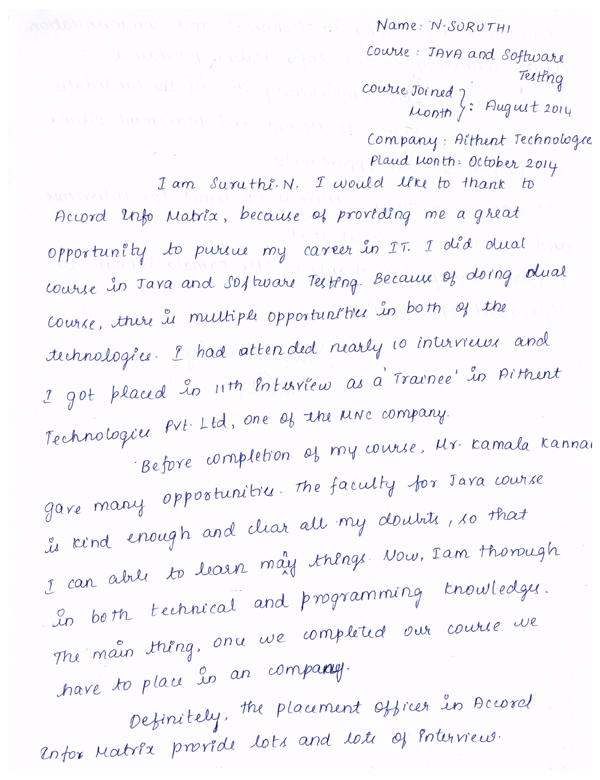 Name: N.SURUTHI
Course: JAVA and Software
Testing
Course Joined
Month }: August 2014
Company: Aithent Technologie
Placed Month: October 2014
I am Suruthi.N. I would like to thank to
Accord Info Matrix, because of providing me a great
opportunity to pursue my career in IT. I did dual
course in Java and Software Testing. Because of doing dual
course, there is multiple opportunities in both of the
technologies. I had attended nearly 10 interviews and
I got placed in 11th interview as a 'Trainee' in Aithent
Technologies Pvt. Ltd, one of the MNC company.
Before completion of my course, Mr. Kamala Kannan
gave many opportunities. The faculty for Java course
is kind enough and clear all my doubts, so that
I can able to learn many things. Now, I am thorough
in both technical and programming knowledge.
The main thing, once we completed our course we
have to place in an company.
Definitely, the placement officer in Accord
Infor Matrix provide lots and lots of interviews.